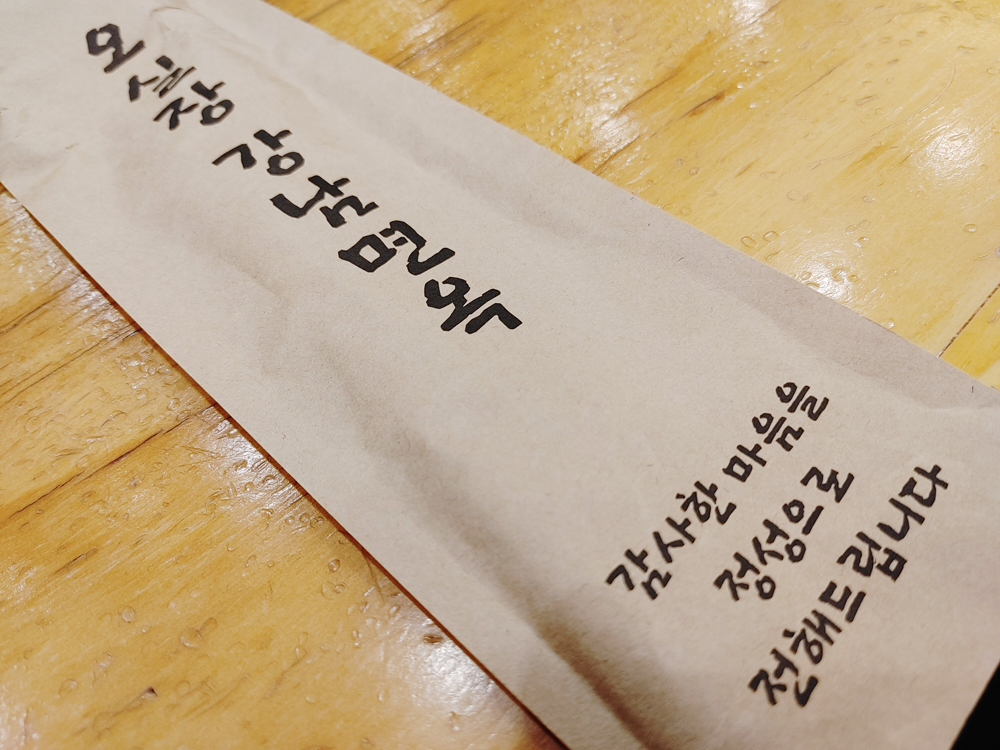 강남면옥
감사한 마음을
정성으로
전해드립니다